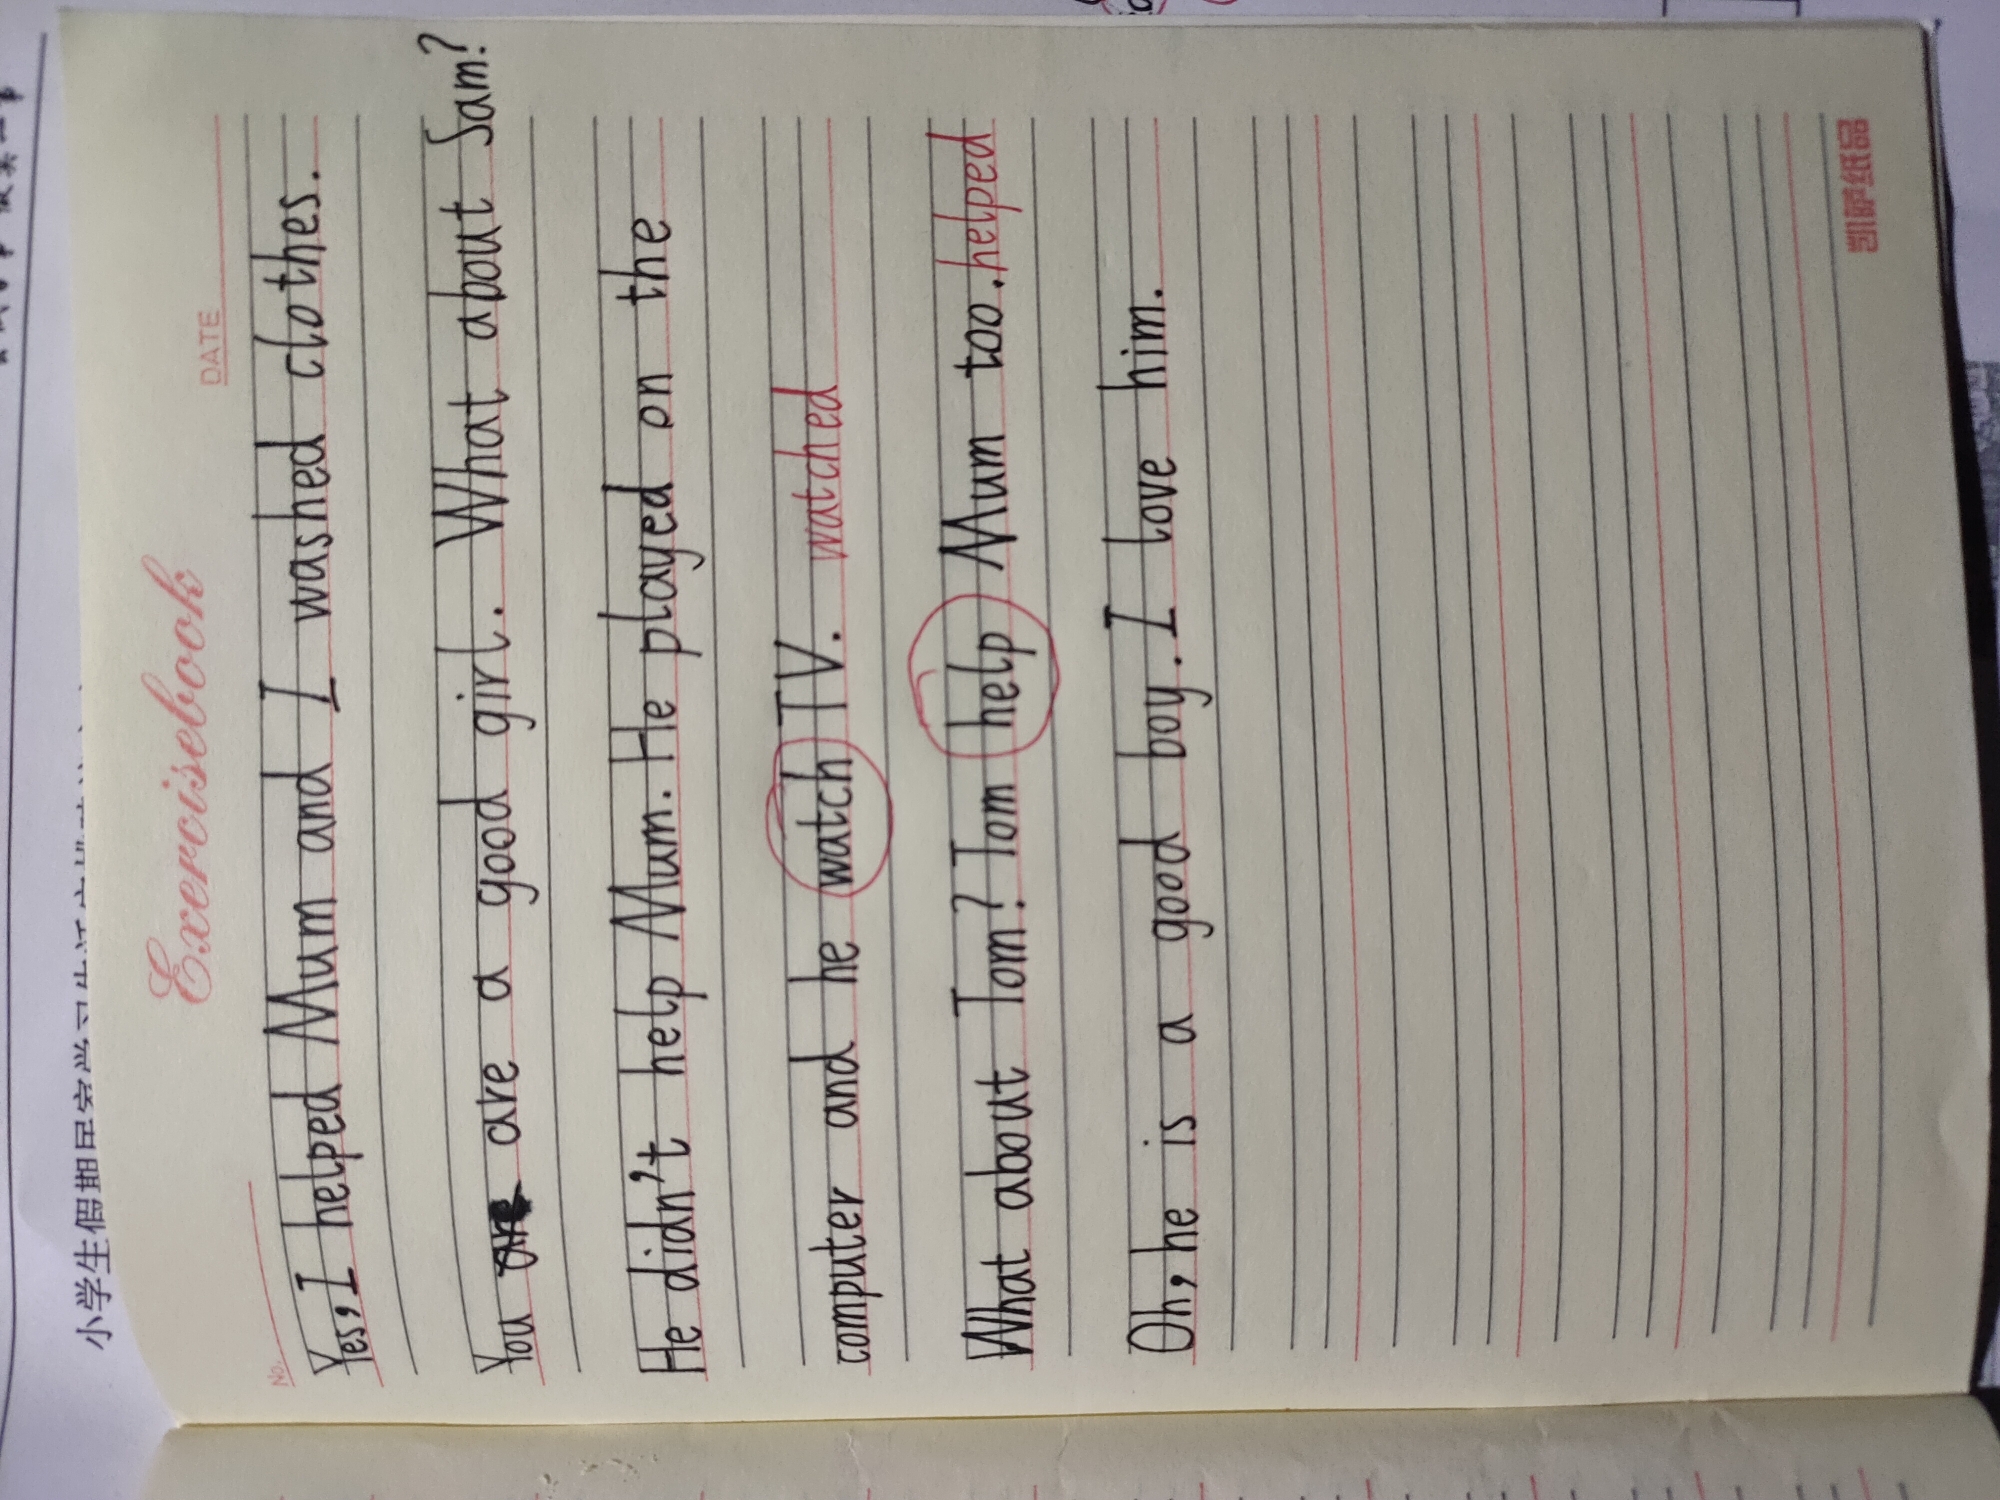 小学生假期居家学习生活
Exercisebook
No.
DATE
Yes, I helped Mum and I washed clothes.
You are a good girl. What about Sam?
He didn't help Mum. He played on the
computer and he watch TV. watched
What about Tom? Tom help Mum too. helped
Oh, he is a good boy. I love him.
凯萨纸品